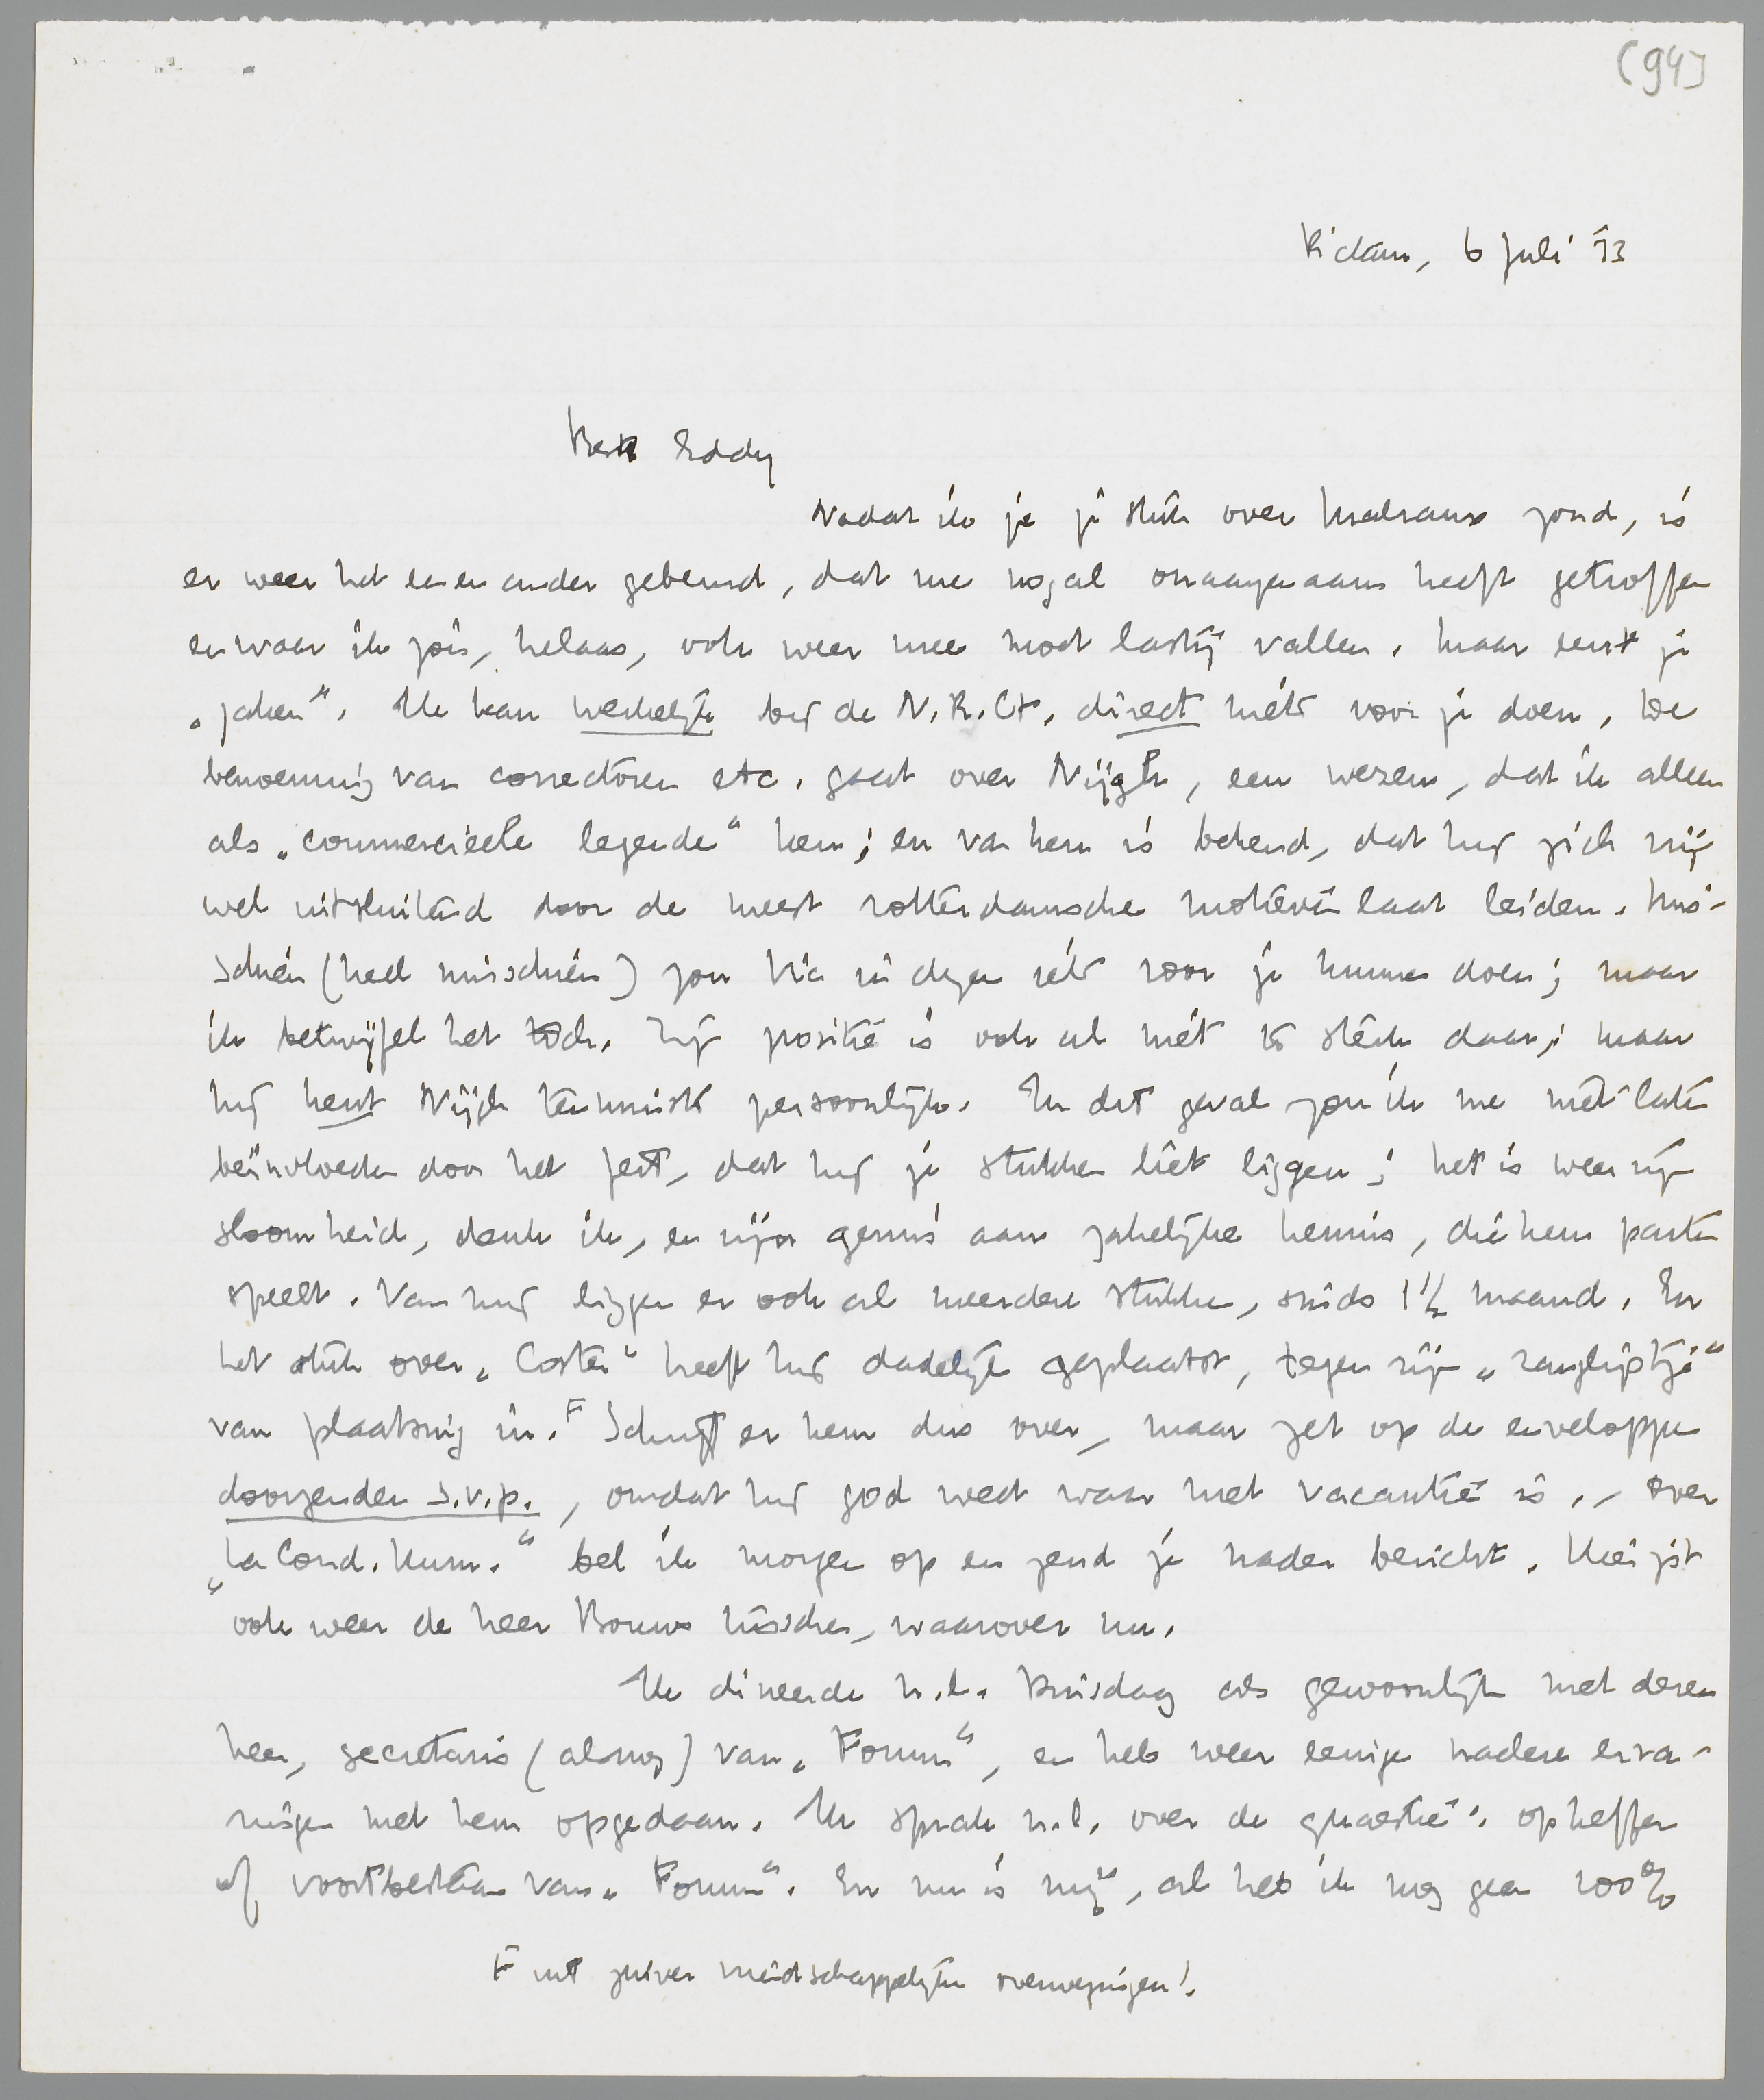 (94)
R'dam, 6 Juli '33
Beste Eddy
Nadat ik je je stuk over Malraux zond, is
er weer het een en ander gebeurd, dat me nogal onaangenaam heeft getroffen
en waar ik jou, helaas, ook weer mee moet lastig vallen. Maar eerst je
„zaken”. Ik kan werkelijk bij de N.R.Ct. direct niets voor je doen. De
benoeming van correctoren etc. gaat over Nijgh, een wezen, dat ik alleen
als „commercieele legende” ken; en van hem is bekend, dat hij zich vrij-
wel uitsluitend door de meest rotterdamsche motieven laat leiden. Mis-
schien (heel misschien) zou Vic in dezen iets voor je kunnen doen; maar
ik betwijfel het toch. Zijn positie is ook al niet te sterk daar; maar
hij kent Nijgh tenminste persoonlijk. In dit geval zou ik me niet laten
beïnvloeden door het feit, dat hij je stukken liet liggen; het is weer zijn
sloomheid, denk ik, en zijn gemis aan zakelijke kennis, die hem parten
speelt. Van mij liggen er ook al meerdere stukken, sinds 1½ maand. En
het stuk over „Coster” heeft hij dadelijk geplaatst, tegen zijn „ranglijstje”
van plaatsing in. F Schrijf er hem dus over, maar zet op de enveloppe
doorzenden s.v.p., omdat hij god weet waar met vacantie is. – Over
„La Cond. Hum.” bel ik morgen op en zend je nader bericht. Hier zit
ook weer de heer Bouws tusschen, waarover nu.
Ik dineerde n.l. Dinsdag als gewoonlijk met dezen
heer, secretaris (alsnog) van „Forum”, en heb weer eenige nadere erva-
ringen met hem opgedaan. Ik sprak n.l. over de quaestie: opheffen
of voortbestaan van „Forum”. En nu is mij, al heb ik nog geen 100%
F uit zuiver vriendschappelijke overwegingen!